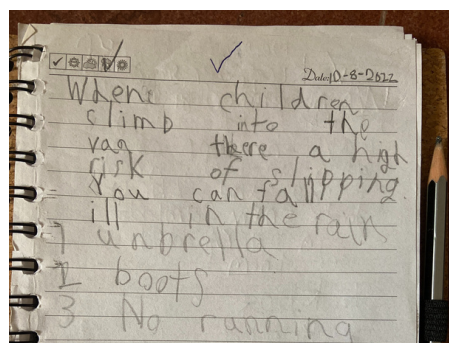 Date10-8-2022
When children
climb into the
van there a high
risk of slipping.
You can fall
ill in the rain
1 unbrella
2 boots
3 No running